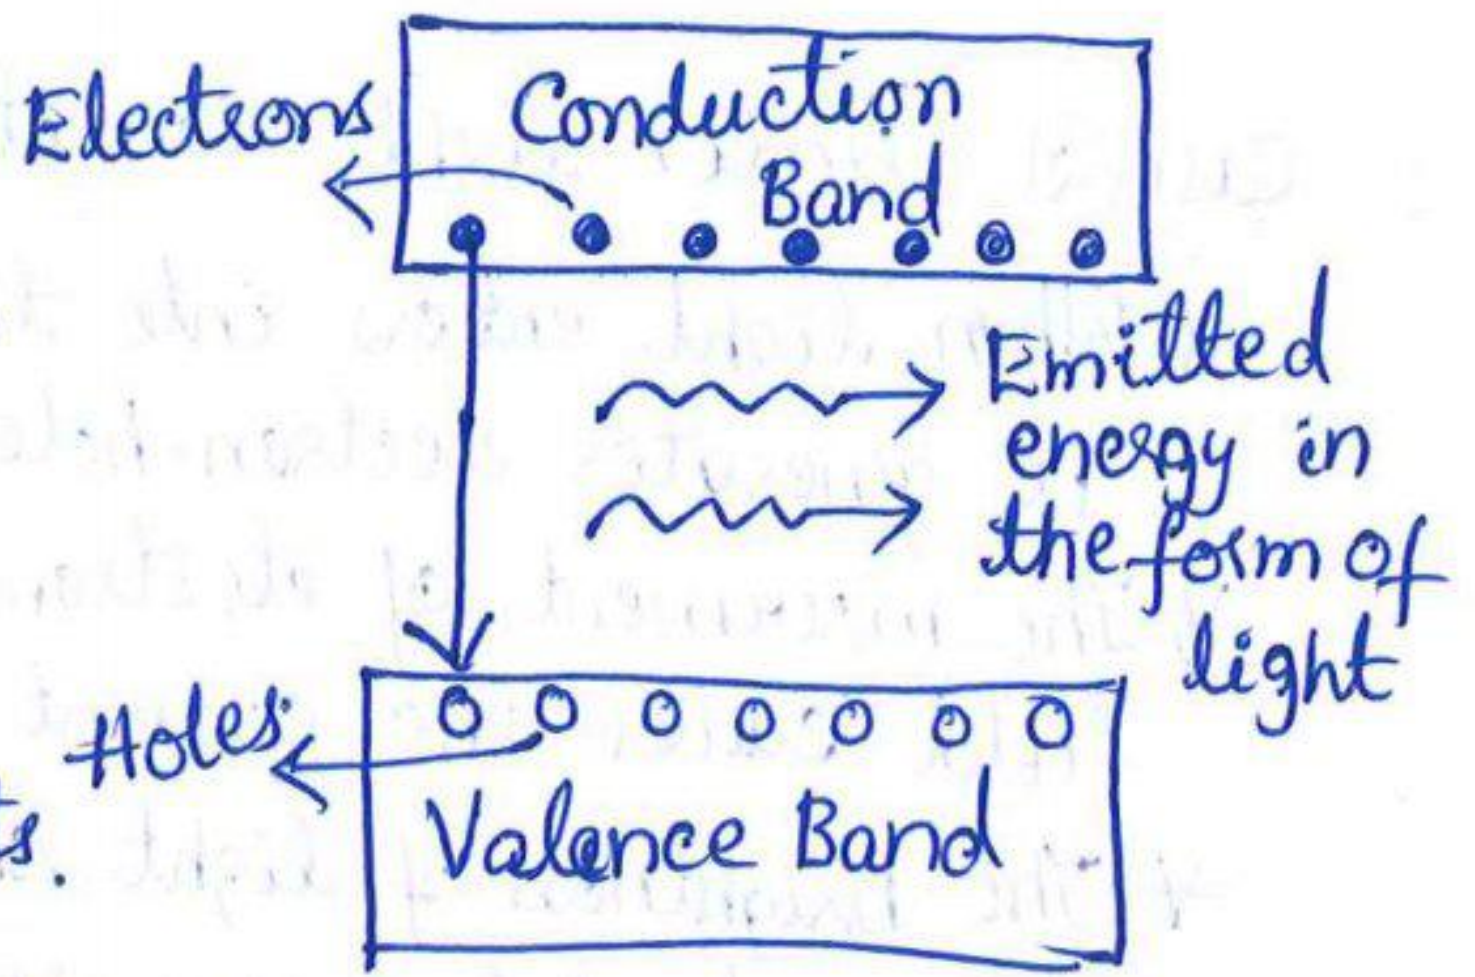 Electrons
Conduction
Band
Emitted
energy in
the form of
light
Holes
ts.
Valence Band